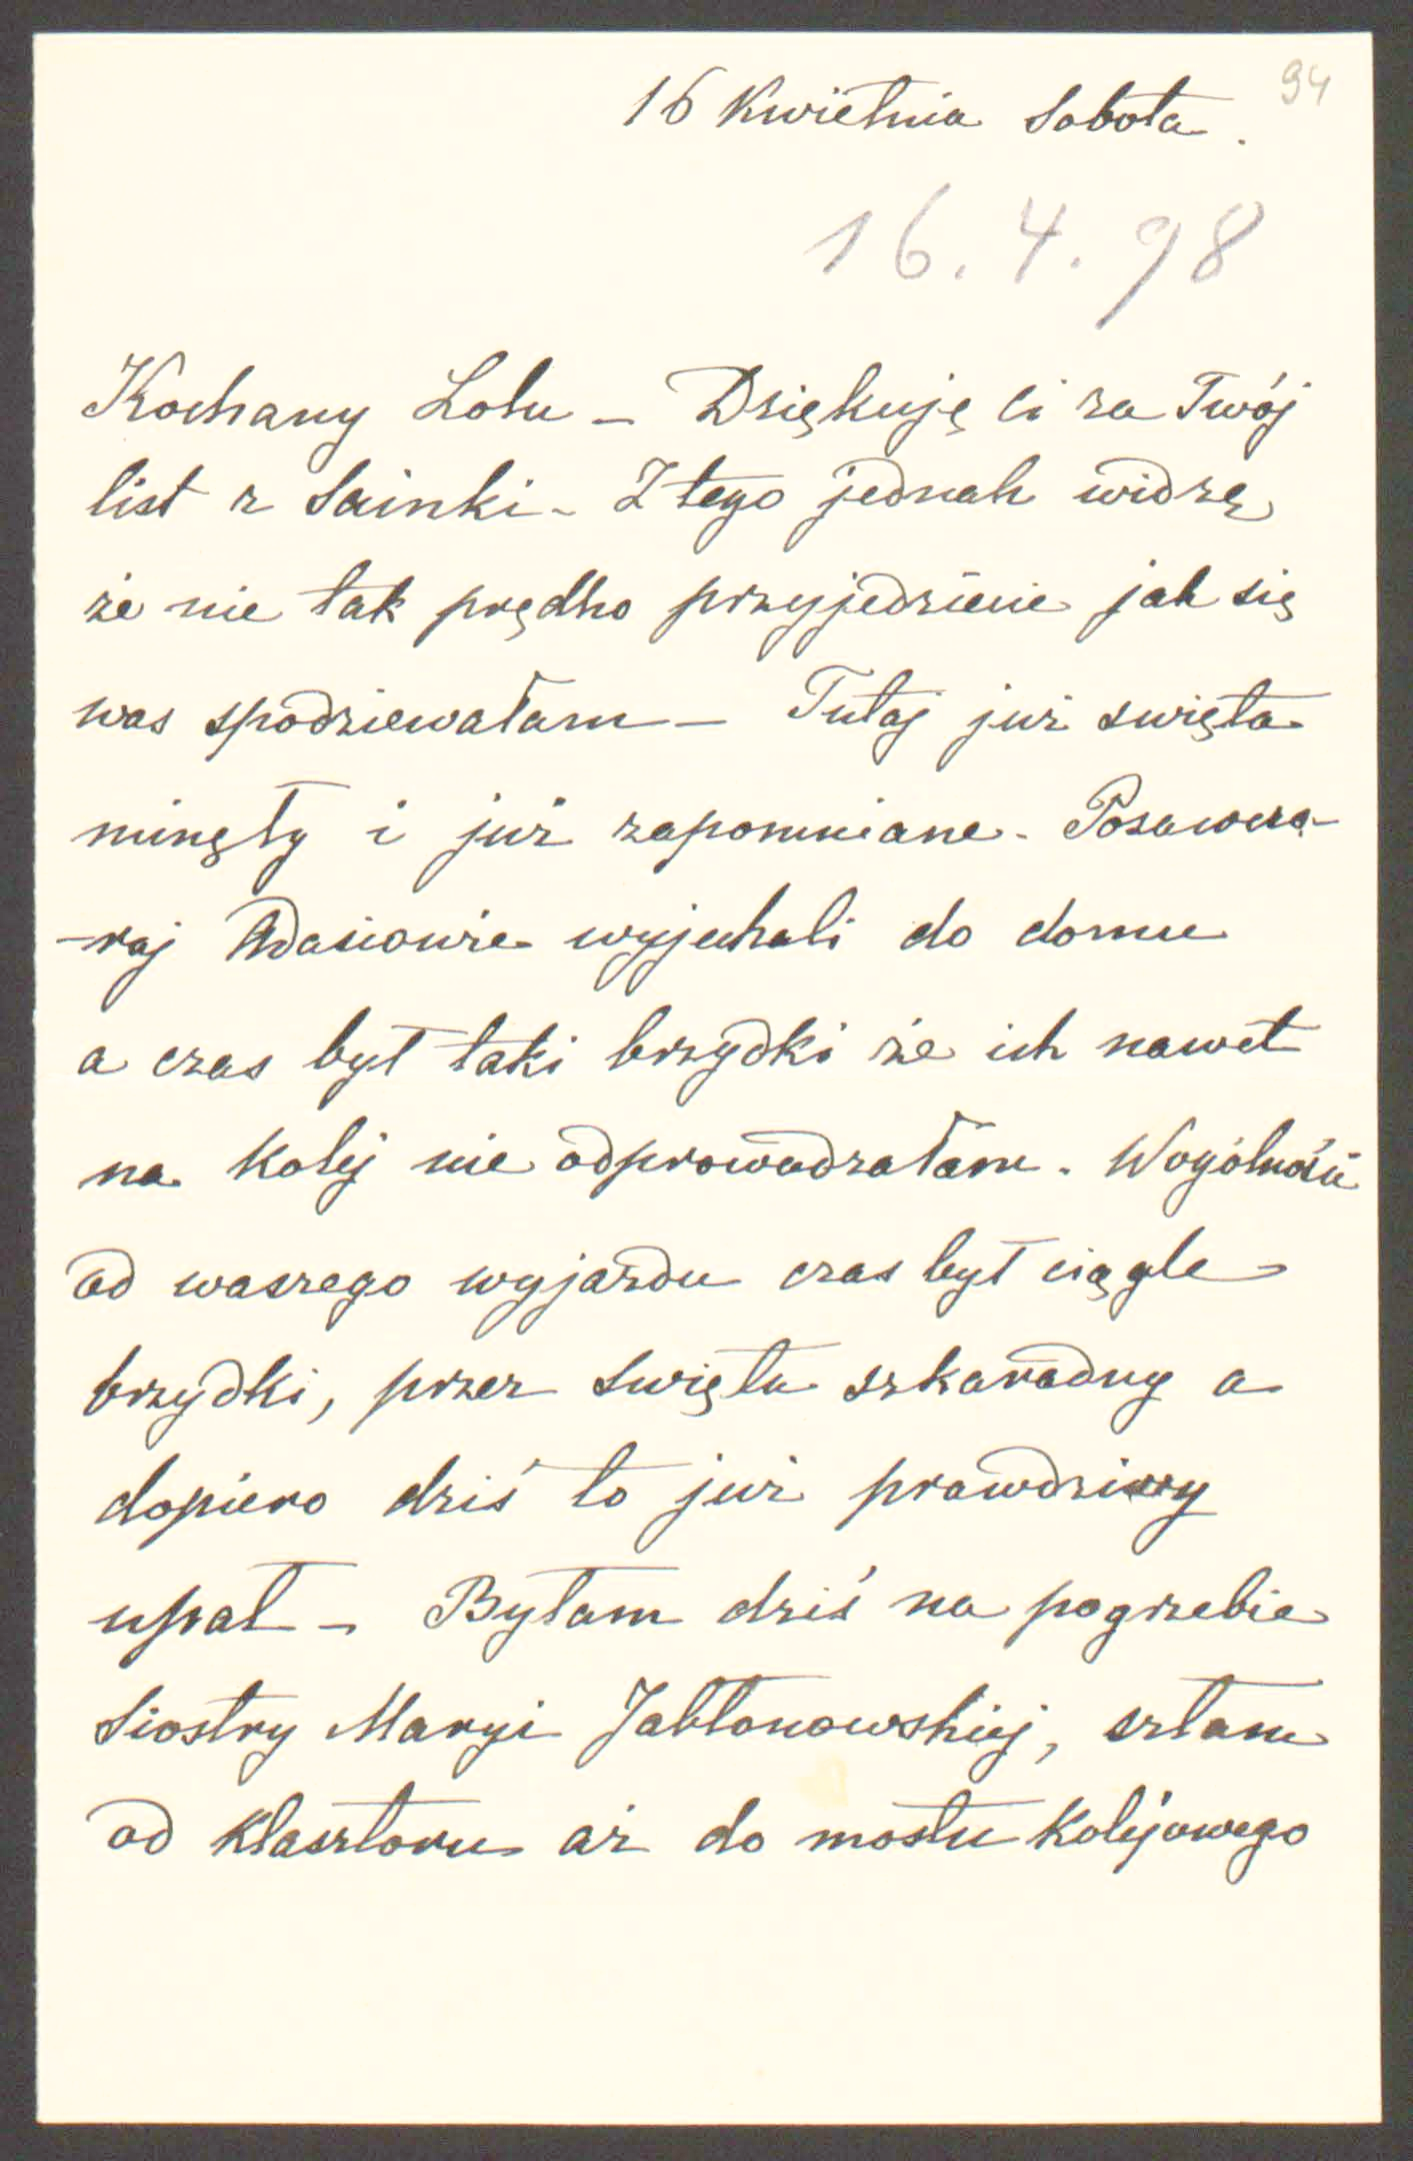 94
16 Kwietnia Sobota.
16. 4. 98
Kochany Lolu – Dziękuję Ci za Twój
list z Sainki – Z tego jednak widzę
że nie tak prędko przyjedziecie jak się
was spodziewałam – Tutaj już swięta
minęły i już zapomniane – Pozawczo-
-raj Adasiowie wyjechali do domu
a czas był taki brzydki że ich nawet
na kolej nie odprowadzałam. Wogólności
od waszego wyjazdu czas był ciągle
brzydki, przez Swięta szkaradny a
dopiero dziś to już prawdziwy
upał – Byłam dziś na pogrzebie
Siostry Maryi Jabłonowskiej, szłam
od Klasztoru aż do mostu Kolejowego